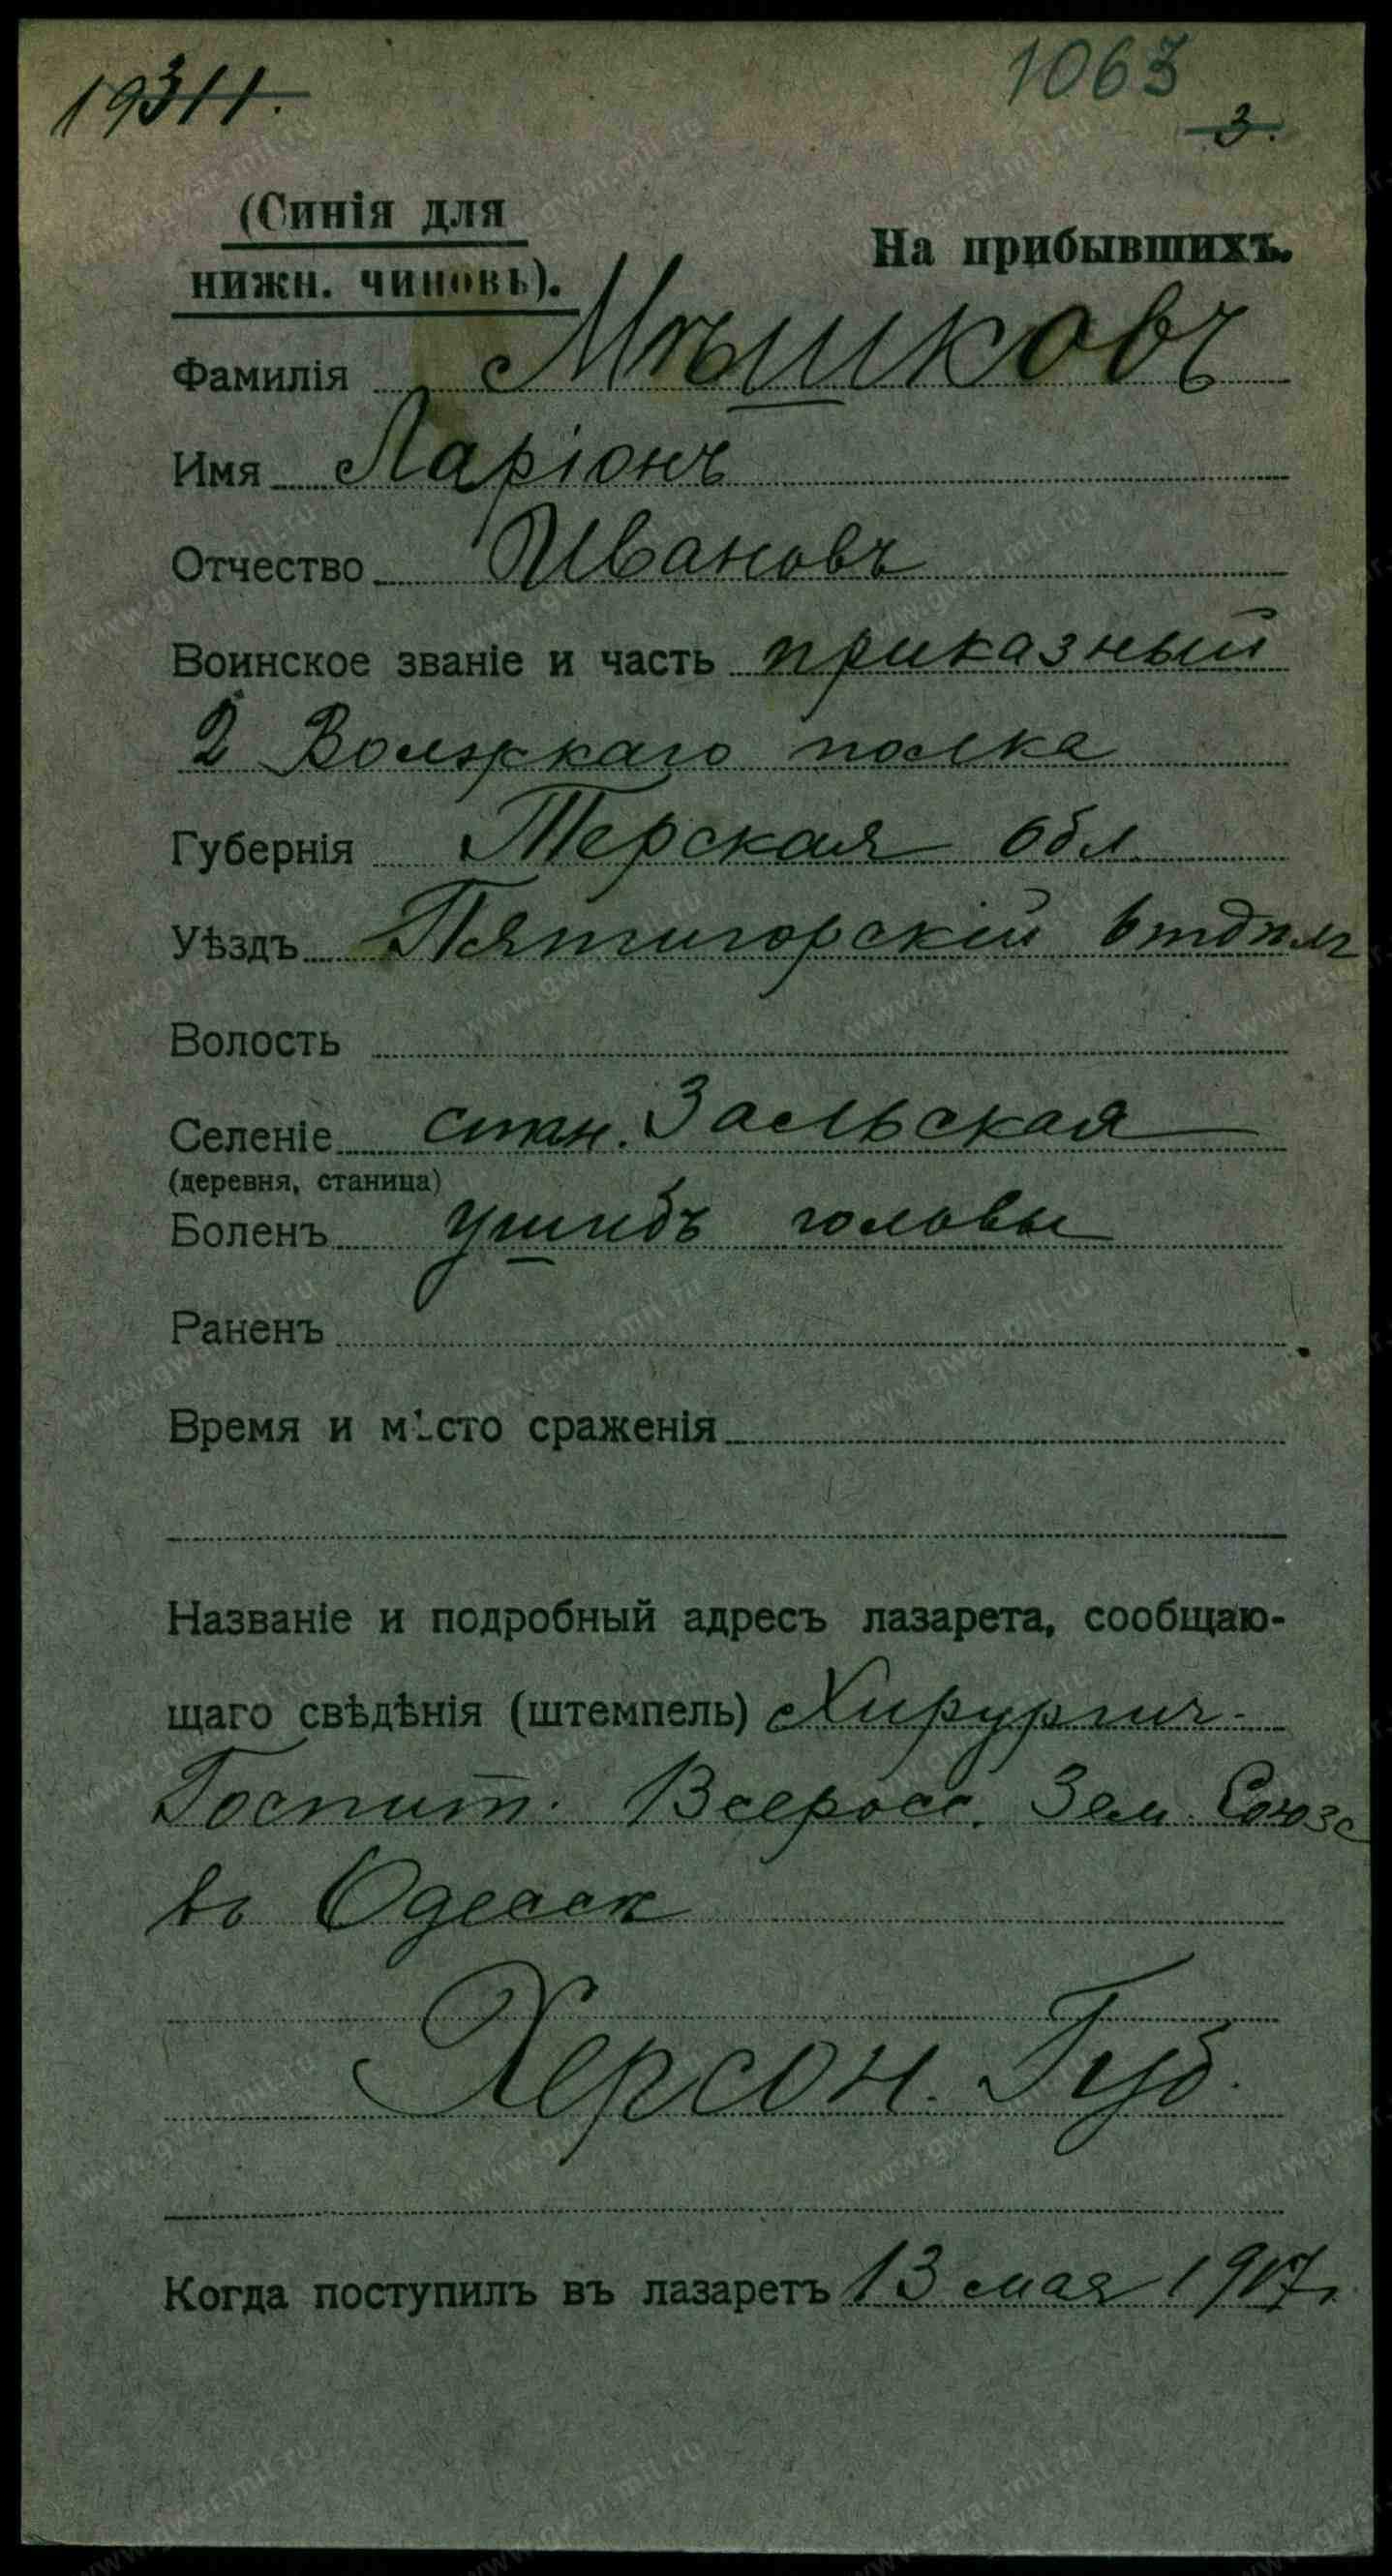 19311.
1063
3.
(Синія для
нижн. чиновъ).
На прибывшихъ.
Фамилія Мѣшковъ
Имя Ларіонъ
Отчество Ивановъ
Воинское званіе и часть приказный
2 Волжскаго полка
Губернія Терская обл.
Уѣздъ Пятигорскій отдѣлъ
Волость
Селеніе стан. Зольская
(деревня, станица)
Боленъ ушибъ головы
Раненъ
Время и мѣсто сраженія
Названіе и подробный адресъ лазарета, сообщаю-
щаго свѣдѣнія (штемпель) Хирургич.
Госпит. Всеросс. Зем. Союза
въ Одессѣ
Херсон. Губ.
Когда поступилъ въ лазаретъ 13 мая 1917 г.